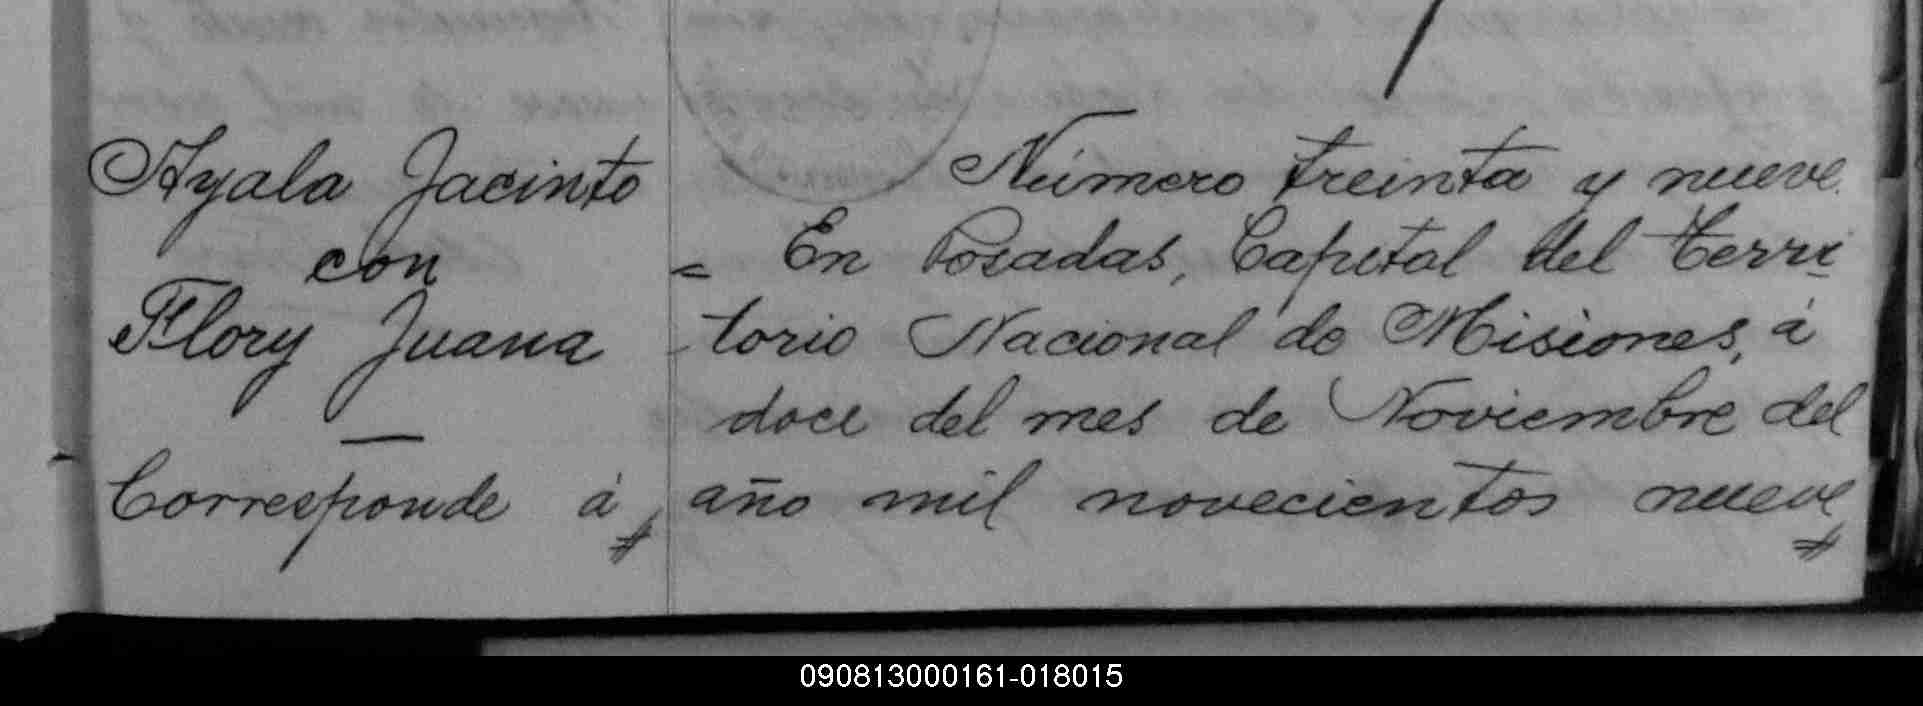 Ayala Jacinto
con
Flory Juana
—
Corresponde á #
Número treinta y nueve.
= En Posadas, Capital del Terri
torio Nacional de Misiones, á
doce del mes de Noviembre del
año mil novecientos nueve #
090813000161-018015